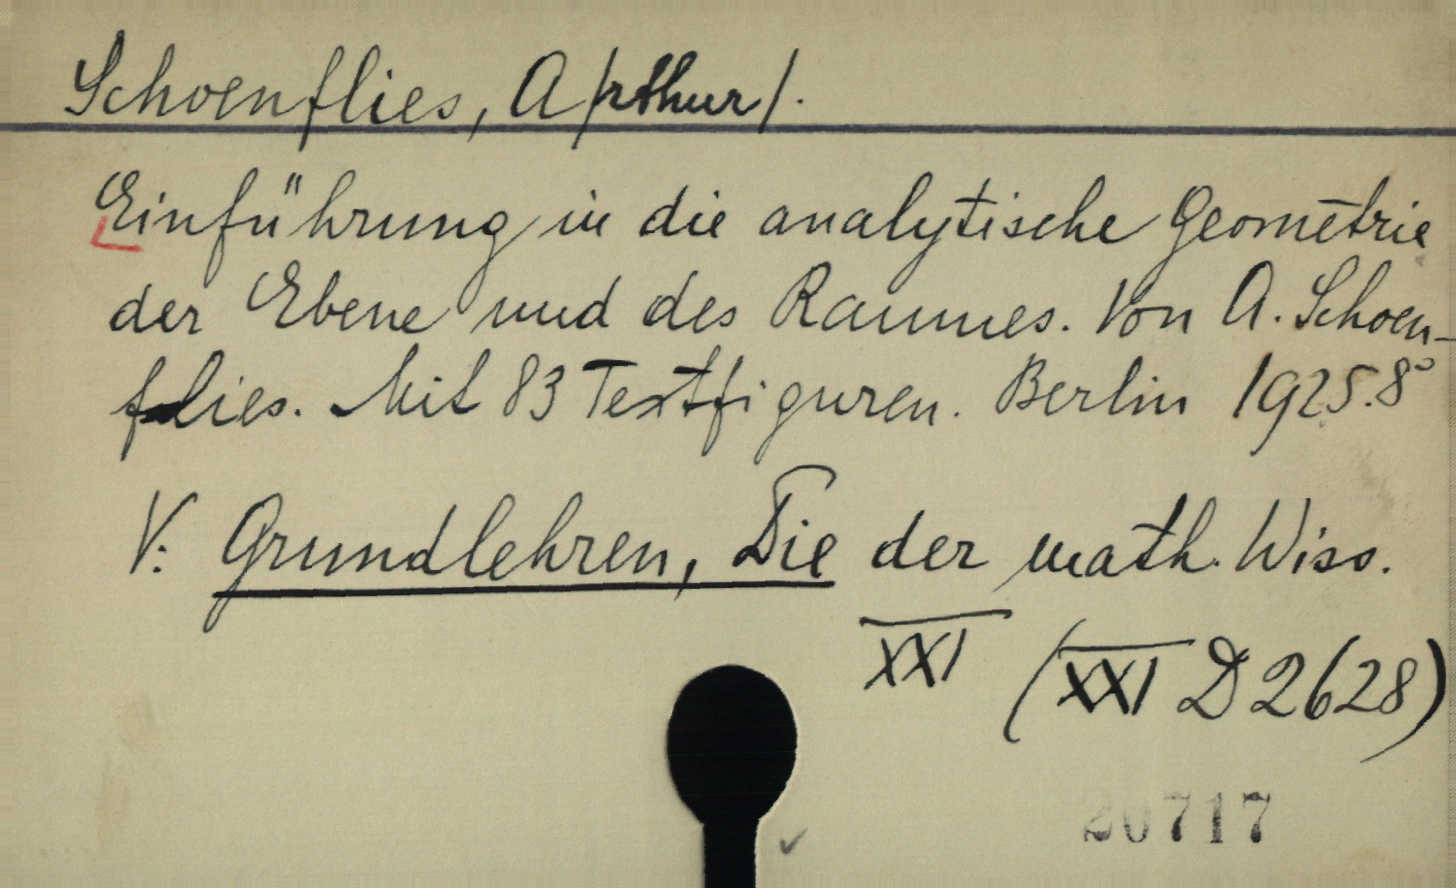 Schoenflies, A/rthur/.
Einführung in die analytische Geometrie
der Ebene und des Raumes. Von A. Schoen-
flies. Mit 83 Textfiguren. Berlin 1925. 8°
V: Grundlehren, Die der math. Wiss.
XXI (XXI D 2628)
20717